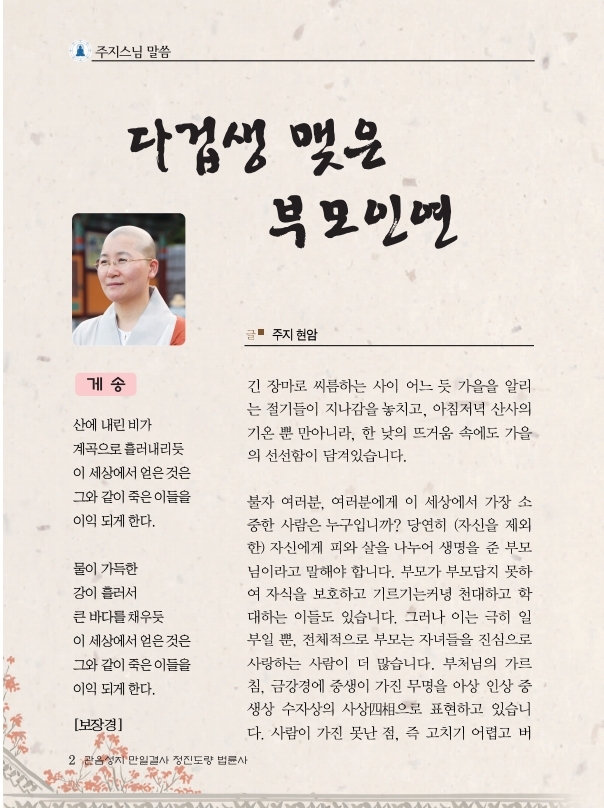 주지스님 말씀
다겁생 맺은
부모인연
글 주지 현암
게 송
산에 내린 비가
계곡으로 흘러내리듯
이 세상에서 얻은 것은
그와 같이 죽은 이들을
이익 되게 한다.
물이 가득한
강이 흘러서
큰 바다를 채우듯
이 세상에서 얻은 것은
그와 같이 죽은 이들을
이익 되게 한다.
[보장경]
긴 장마로 씨름하는 사이 어느 듯 가을을 알리
는 절기들이 지나감을 놓치고, 아침저녁 산사의
기온 뿐 만아니라, 한 낮의 뜨거움 속에도 가을
의 선선함이 담겨있습니다.
불자 여러분, 여러분에게 이 세상에서 가장 소
중한 사람은 누구입니까? 당연히 (자신을 제외
한) 자신에게 피와 살을 나누어 생명을 준 부모
님이라고 말해야 합니다. 부모가 부모답지 못하
여 자식을 보호하고 기르기는커녕 천대하고 학
대하는 이들도 있습니다. 그러나 이는 극히 일
부일 뿐, 전체적으로 부모는 자녀들을 진심으로
사랑하는 사람이 더 많습니다. 부처님의 가르
침, 금강경에 중생이 가진 무명을 아상 인상 중
생상 수자상의 사상四相으로 표현하고 있습니
다. 사람이 가진 못난 점, 즉 고치기 어렵고 버
2 관음성지 만일결사 정진도량 법륜사